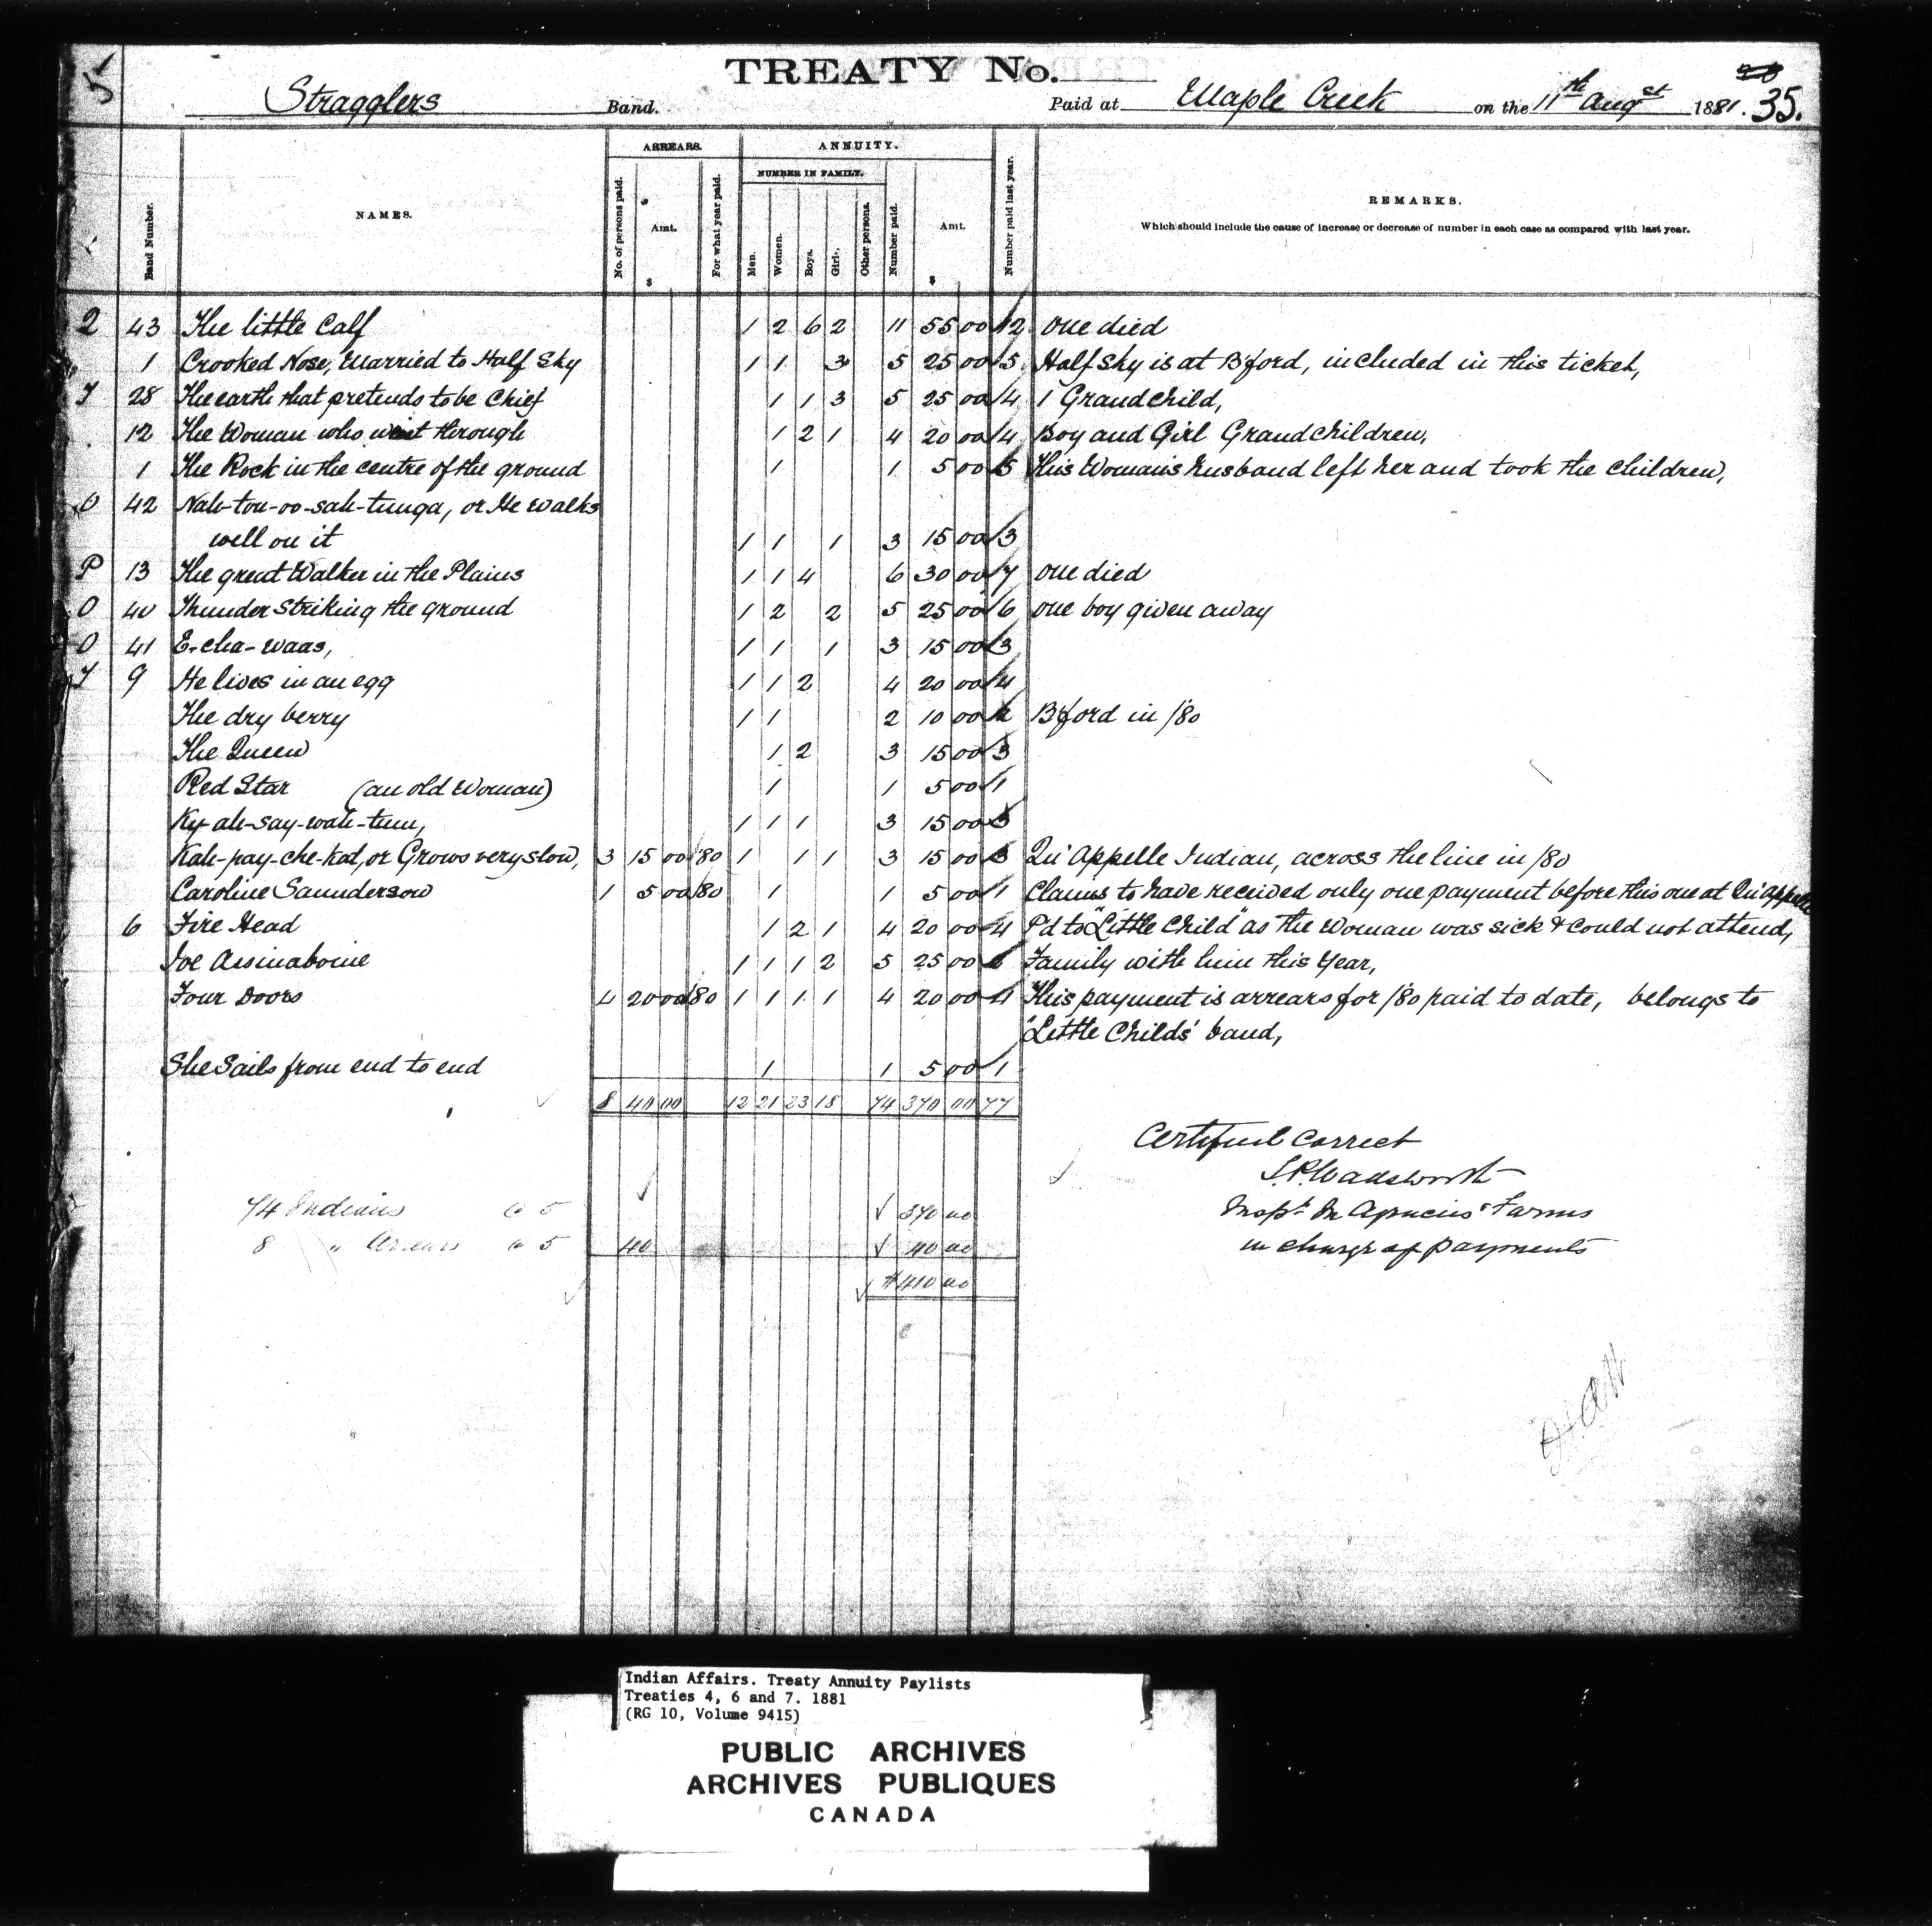 5
TREATY No.
35.
Stragglers Band. Paid at Maple Creek on the 11th Augst 1881.
ARREARS. ANNUITY.
NUMBER IN FAMILY.
Band Number. NAMES. No. of persons paid. Amt. $ For what year paid. Men. Women. Boys. Girls. Other persons. Number paid. Amt. $ Number paid last year. REMARKS.
Which should include the cause of increase or decrease of number in each case as compared with last year.
2 43 The little Calf 1 2 6 2 11 55 00 12 One died
1 Crooked Nose, Married to Half Sky 1 1 3 5 25 00 5 Half Sky is at B'ford, included in this ticket,
28 The earth that pretends to be Chief 1 1 3 5 25 00 4 1 Grandchild,
12 The Woman who went through 1 2 1 4 20 00 4 Boy and Girl Grandchildren,
1 The Rock in the centre of the ground 1 1 5 00 5 This Woman's husband left her and took the children,
O 42 Nah-tou-oo-sah-tunga, or He Walks
well on it 1 1 1 3 15 00 3
P 13 The great Walker in the Plains 1 1 4 6 30 00 7 One died
O 40 Thunder Striking the ground 1 2 2 5 25 00 6 One boy given away
O 41 E-cha-waas, 1 1 1 3 15 00 3
9 He lives in an egg 1 1 2 4 20 00 4
The dry berry 1 1 2 10 00 2 B'ford in /80
The Queen 1 2 3 15 00 3
Red Star (an old Woman) 1 1 5 00 1
Ky-ah-say-wah-tum, 1 1 1 3 15 00 3
Kah-pay-che-kat, or Grows very slow, 3 15 00 '80 1 1 1 3 15 00 3 Qu'Appelle Indian, across the line in /80
Caroline Saunderson 1 5 00 /80 1 1 5 00 1 Claims to have received only one payment before this one at Qu'Appelle
6 Fire Head 1 2 1 4 20 00 4 P'd to "Little Child" as the Woman was sick & could not attend,
Joe Assinaboine 1 1 1 2 5 25 00 Family with him this Year,
Four Doors 4 20 00 '80 1 1 1 1 4 20 00 4 This payment is arrears for /80 paid to date, belongs to
'Little Childs' band,
She Sails from end to end 1 1 5 00 1
8 40 00 12 21 23 18 74 370 00 77
Certified Correct
Wadsworth
74 Indians @ 5 370 00 Inspt In Agencies & Farms
8 " Arrears @ 5 40 40 00 in charge of payments
$410 00
Indian Affairs. Treaty Annuity Paylists
Treaties 4, 6 and 7. 1881
(RG 10, Volume 9415)
PUBLIC ARCHIVES
ARCHIVES PUBLIQUES
CANADA